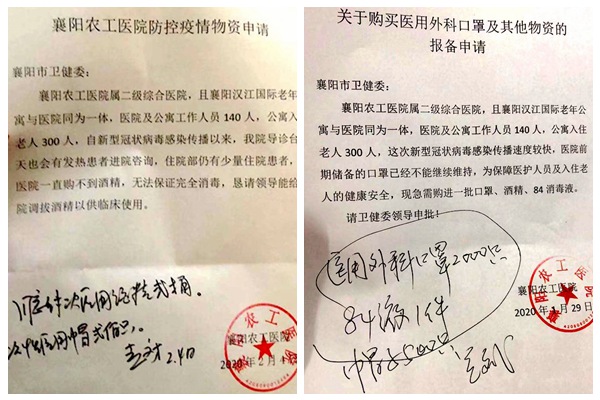 襄阳农工医院防控疫情物资申请
襄阳市卫健委：
襄阳农工医院属二级综合医院，且襄阳汉江国际老年
寓与医院同为一体，医院及公寓工作人员 140 人，公寓入
老人 300 人，自新型冠状病毒感染传播以来，我院导诊台
天也会有发热患者进院咨询，住院部仍有少量住院患者，
医院一直购不到酒精，无法保证完全消毒，恳请领导能给
院调拔酒精以供临床使用。
2.4日
襄阳农工医院
2020 年 2 月 4
关于购买医用外科口罩及其他物资的
报备申请
襄阳市卫健委：
襄阳农工医院属二级综合医院，且襄阳汉江国际老年
寓与医院同为一体，医院及公寓工作人员 140 人，公寓入住
老人 300 人，这次新型冠状病毒感染传播速度较快，医院前
期储备的口罩已经不能继续维持，为保障医护人员及入住老
人的健康安全，现急需购进一批口罩、酒精、84 消毒液。
请卫健委领导申批！
医用外科口罩2000只
84液1件
襄阳农工医院
2020 年 1 月 29 日